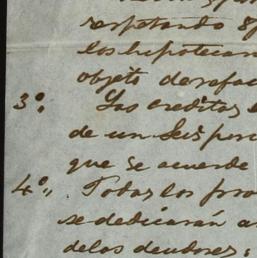 respetando
los hipotecar
objeto de refac
3º. Los creditos
de un Seis por
que se acuerde
4º. Todos los pro
se dedicarán a
de los deudores: